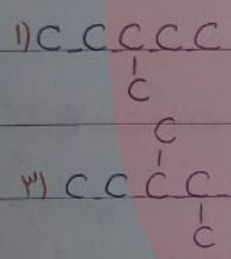 1) C _ C _ C _ C _ C
|
C
C
|
۳) C C C C
|
C